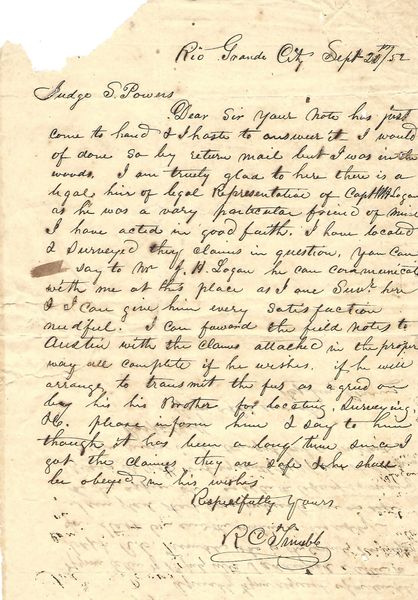 Rio Grande City Sept 20th/52
Judge S. Powers
Dear Sir Your Note has just
come to hand & I haste to answer it I would
of done so by return mail but I was in the
woods. I am truely glad to here there is a
legal hir of legal Representative of Capt Logan
as he was a vary particular friend of mine
I have acted in good faith. I have located
& Surveyed they claims in question. You can
say to Mr J. H. Logan he can communicate
with me at this place as I am Survr here
& I can give him every satisfaction
needful. I can foward the field notes to
Austin with the claims attached in the proper
way all complete if he wishes. if he will
arrange to transmit the fees as agreed on
by his his Brother for locating, Surveying
&c. please inform him & say to him
though it has been a long time since I
got the claimes they are safe & he shall
be obeyed in his wishes
Respectfully Yours.
R C Trimble